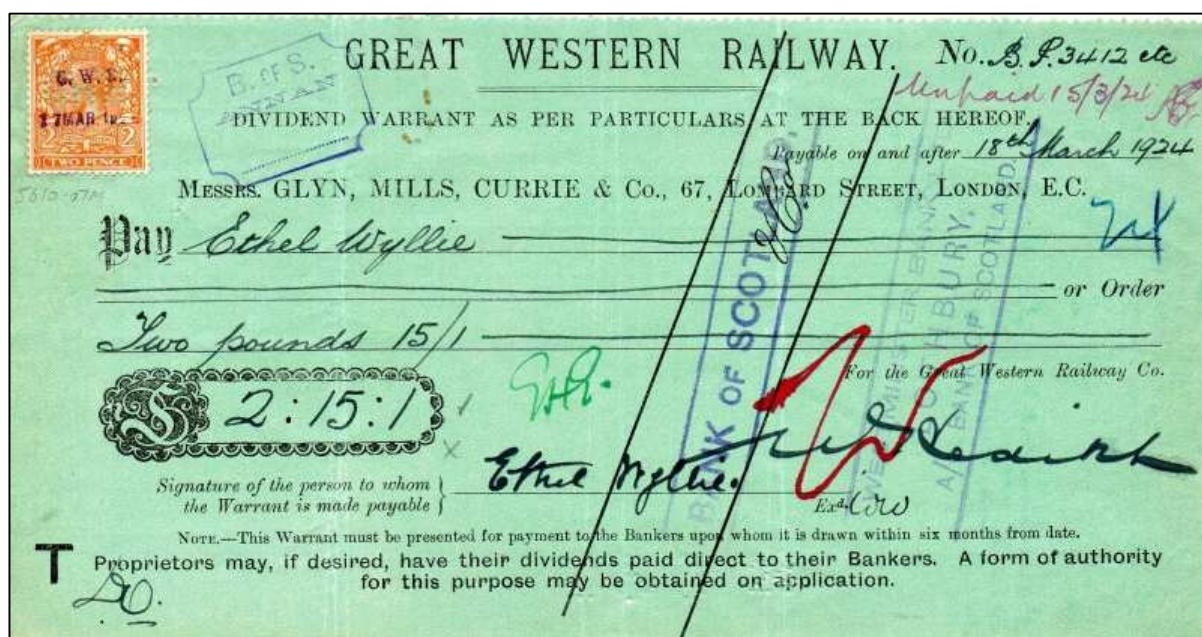 GREAT WESTERN RAILWAY. No. B.P. 3412 etc
Unpaid 15/3/24
B. OF S.
ANNAN
G. W. R.
17 MAR
2 2
TWO PENCE
DIVIDEND WARRANT AS PER PARTICULARS AT THE BACK HEREOF.
Payable on and after 18th March 1924
5610-07M
MESSRS. GLYN, MILLS, CURRIE & Co., 67, LOMBARD STREET, LONDON, E.C.
Pay Ethel Wyllie
& Co
or Order
Two pounds 15/1
For the Great Western Railway Co.
£ 2:15:1
BANK OF SCOTLAND,
WESTMINSTER BANK
LOTHBURY.
A/C BANK OF SCOTLAND
Signature of the person to whom
the Warrant is made payable } Ethel Wyllie.
Exd.
NOTE.—This Warrant must be presented for payment to the Bankers upon whom it is drawn within six months from date.
T Proprietors may, if desired, have their dividends paid direct to their Bankers. A form of authority
for this purpose may be obtained on application.